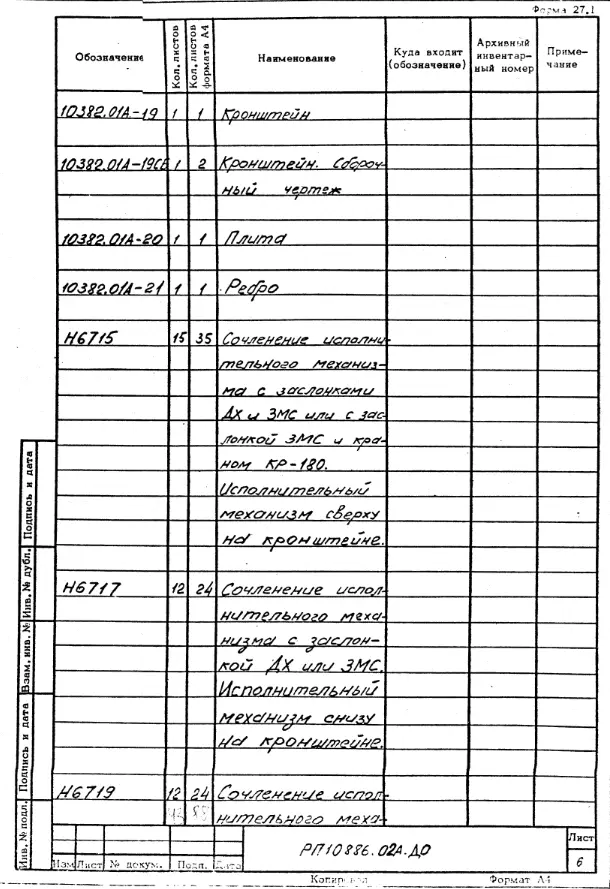 Форма 27.1
Обозначение Кол. листов Кол. листов формата А4 Наименование Куда входит (обозначение) Архивный инвентар- ный номер Приме- чание
10382.01А-19 1 1 Кронштейн
10382.01А-19СБ 1 2 Кронштейн. Сбороч-
ный чертеж
10382.01А-20 1 1 Плита
10382.01А-21 1 1 Ребро
Н6715 15 35 Сочленение исполни-
тельного механиз-
ма с заслонками
ДХ и ЗМС или с зас-
лонкой ЗМС и кра-
ном КР-180.
Исполнительный
механизм сверху
на кронштейне.
Н6717 12 24 Сочленение испол-
нительного меха-
низма с заслон-
кой ДХ или ЗМС.
Исполнительный
механизм снизу
на кронштейне.
Н6719 12 24 Сочленение испол-
нительного меха-
Инв. № подл. Подпись и дата Взам. инв. № Инв. № дубл. Подпись и дата
РП10886.02А.ДО
Лист
6
Изм Лист № докум. Подп. Дата
Копировал Формат А4